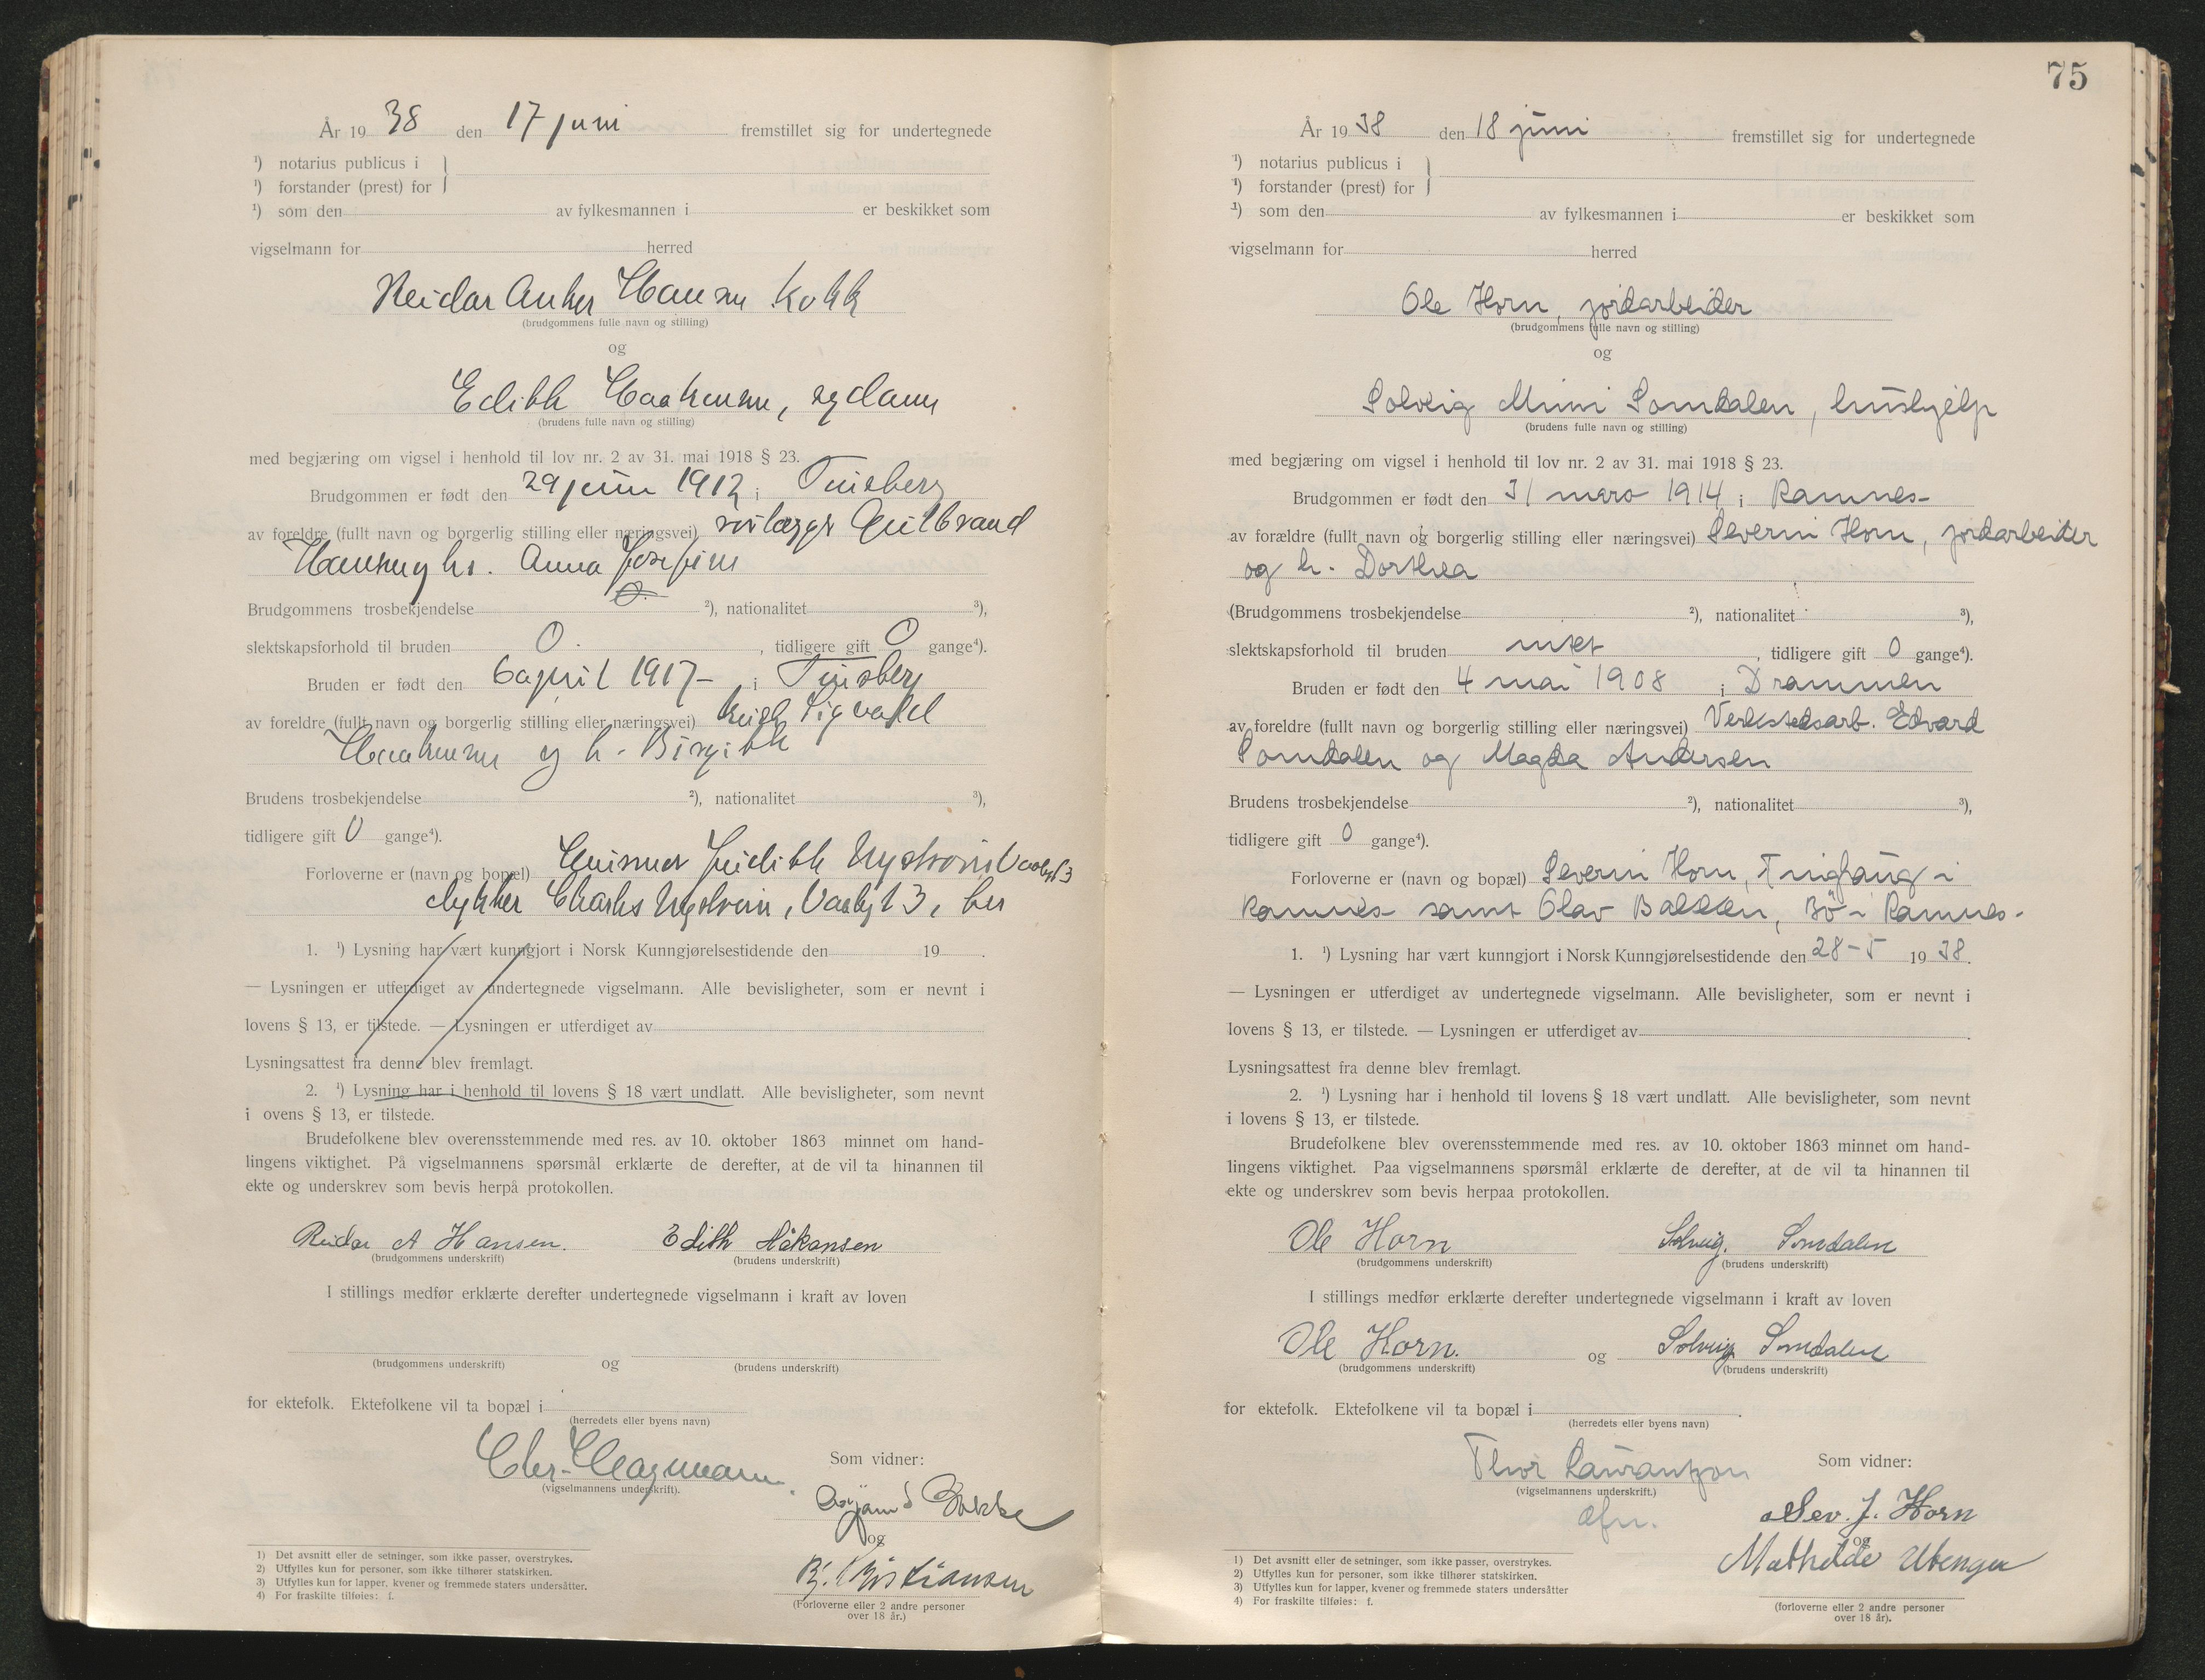 År 19 38 den 17 juni fremstillet sig for undertegnede
¹) notarius publicus i
¹) forstander (prest) for
¹) som den av fylkesmannen i er beskikket som
vigselmann for herred
Reidar Anker Hansen kokk
(brudgommens fulle navn og stilling)
og
Edith Haakensen, sydame
(brudens fulle navn og stilling)
med begjæring om vigsel i henhold til lov nr. 2 av 31. mai 1918 § 23.
Brudgommen er født den 29 juni 1912 i Tønsberg
av foreldre (fullt navn og borgerlig stilling eller næringsvei) rørlegger Gulbrand
Hansen og hs. Anna Josefine
Brudgommens trosbekjendelse ²), nationalitet ³),
slektskapsforhold til bruden 0. , tidligere gift 0 gange⁴).
Bruden er født den 6 april 1917 – i Tønsberg
av foreldre (fullt navn og borgerlig stilling eller næringsvei) Sigvald
Haakensen og h. Birgith
Brudens trosbekjendelse ²), nationalitet ³),
tidligere gift 0 gange⁴).
Forloverne er (navn og bopæl) Judith Nystrøm
dykker Charles Nystrøm, 3, her
1. ¹) Lysning har vært kunngjort i Norsk Kunngjørelsestidende den 19 .
— Lysningen er utferdiget av undertegnede vigselmann. Alle bevisligheter, som er nevnt i
lovens § 13, er tilstede. — Lysningen er utferdiget av
Lysningsattest fra denne blev fremlagt.
2. ¹) Lysning har i henhold til lovens § 18 vært undlatt. Alle bevisligheter, som nevnt
i ovens § 13, er tilstede.
Brudefolkene blev overensstemmende med res. av 10. oktober 1863 minnet om hand-
lingens viktighet. På vigselmannens spørsmål erklærte de derefter, at de vil ta hinannen til
ekte og underskrev som bevis herpå protokollen.
Reidar A Hansen. Edith Håkansen
(brudgommens underskrift) (brudens underskrift)
I stillings medfør erklærte derefter undertegnede vigselmann i kraft av loven
og
(brudgommens underskrift) (brudens underskrift)
for ektefolk. Ektefolkene vil ta bopæl i
(herredets eller byens navn)
Chr. Hagemann.
(vigselmannens underskrift).
Som vidner:
Bakke
og
R. Kristiansen
(Forloverne eller 2 andre personer
over 18 år.)
1) Det avsnitt eller de setninger, som ikke passer, overstrykes.
2) Utfylles kun for personer, som ikke tilhører statskirken.
3) Utfylles kun for lapper, kvener og fremmede staters undersåtter.
4) For fraskilte tilføies: f.
75
År 19 38 den 18 juni fremstillet sig for undertegnede
¹) notarius publicus i
¹) forstander (prest) for
¹) som den av fylkesmannen i er beskikket som
vigselmann for herred
Ole Horn, jordarbeider
(brudgommens fulle navn og stilling)
og
Solveig Mimi Somdalen, hushjelp
(brudens fulle navn og stilling)
med begjæring om vigsel i henhold til lov nr. 2 av 31. mai 1918 § 23.
Brudgommen er født den 31 mars 1914 i Ramnes-
av forældre (fullt navn og borgerlig stilling eller næringsvei) Severin Horn, jordarbeider
og h. Dorthea
(Brudgommens trosbekjendelse ²), nationalitet ³),
slektskapsforhold til bruden intet , tidligere gift 0 gange⁴).
Bruden er født den 4 mai 1908 i Drammen
av foreldre (fullt navn og borgerlig stilling eller næringsvei) Verkstedsarb. Edvard
Somdalen og Magda Andersen
Brudens trosbekjendelse ²), nationalitet ³),
tidligere gift 0 gange⁴).
Forloverne er (navn og bopæl) Severin Horn, i
Ramnes samt Olav Bakken, Bø i Ramnes-
1. ¹) Lysning har vært kunngjort i Norsk Kunngjørelsestidende den 28-5 19 38.
— Lysningen er utferdiget av undertegnede vigselmann. Alle bevisligheter, som er nevnt i
lovens § 13, er tilstede. — Lysningen er utferdiget av .
Lysningsattest fra denne blev fremlagt.
2. ¹) Lysning har i henhold til lovens § 18 vært undlatt. Alle bevisligheter, som nevnt
i lovens § 13, er tilstede.
Brudefolkene blev overensstemmende med res. av 10. oktober 1863 minnet om hand-
lingens viktighet. Paa vigselmannens spørsmål erklærte de derefter, at de vil ta hinannen til
ekte og underskrev som bevis herpaa protokollen.
Ole Horn Solveig. Somdalen
(brudgommens underskrift) (brudens underskrift)
I stillings medfør erklærte derefter undertegnede vigselmann i kraft av loven
Ole Horn. og Solveig Somdalen
(brudgommens underskrift) (brudens underskrift)
for ektefolk. Ektefolkene vil ta bopæl i .
(herredets eller byens navn)
Thor Laurantzon
(vigselmannens underskrift.)
Som vidner:
Sev. J. Horn
og
Mathilde
(forloverne eller 2 andre personer
over 18 år).
1) Det avsnitt eller de setninger, som ikke passer, overstrykes.
2) Utfylles kun for personer, som ikke tilhører statskirken.
3) Utfylles kun for lapper, kvener og fremmede staters undersåtter
4) For fraskilte tilføies: f.